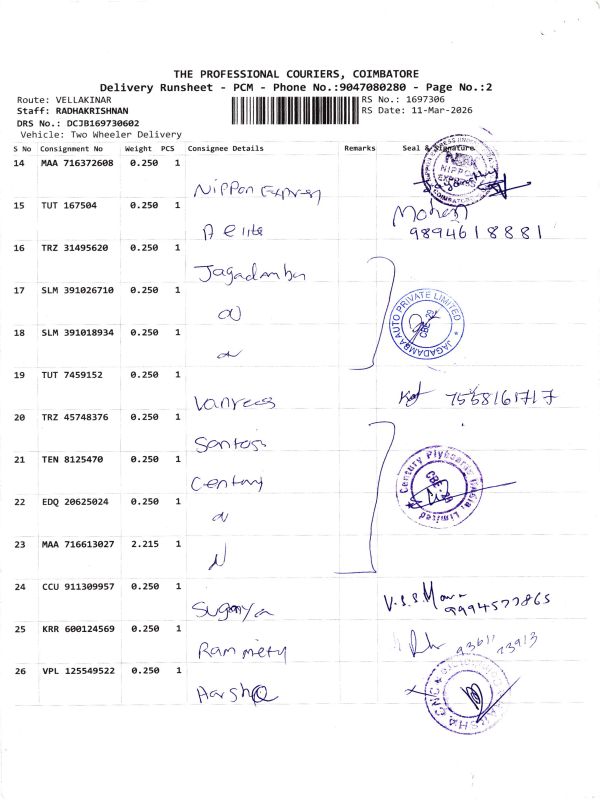 THE PROFESSIONAL COURIERS, COIMBATORE
Delivery Runsheet - PCM - Phone No.:9047080280 - Page No.:2
Route: VELLAKINAR
RS No.: 1697306
Staff: RADHAKRISHNAN
RS Date: 11-Mar-2026
DRS No.: DCJB169730602
Vehicle: Two Wheeler Delivery
S No Consignment No Weight PCS Consignee Details Remarks Seal & Signature
14 MAA 716372608 0.250 1
Nippon Express
NIPPON EXPRESS
15 TUT 167504 0.250 1
A elite
Mohan
9894618881
16 TRZ 31495620 0.250 1
Jagadamba
17 SLM 391026710 0.250 1
JAGADAMBA AUTO PRIVATE LIMITED
CBE
18 SLM 391018934 0.250 1
19 TUT 7459152 0.250 1
7558161717
20 TRZ 45748376 0.250 1
Santosh
21 TEN 8125470 0.250 1
Century
Century Plyboards (India) Limited
CBE
22 EDQ 20625024 0.250 1
23 MAA 716613027 2.215 1
24 CCU 911309957 0.250 1
Suganya
V.S.S.
9994577865
25 KRR 600124569 0.250 1
93611
73913
26 VPL 125549522 0.250 1
Aarsha
CNC